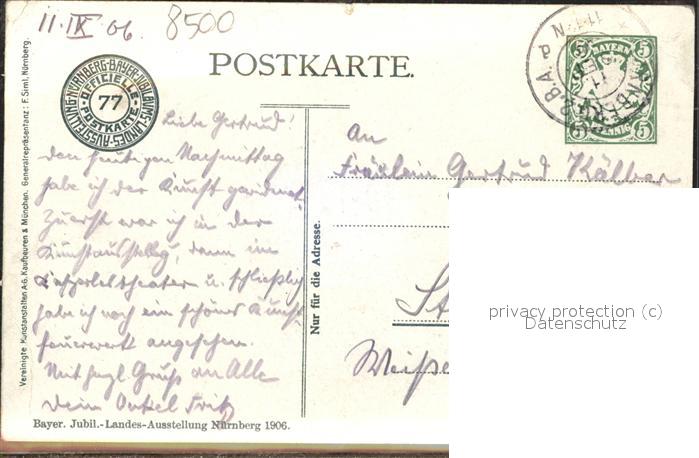 11.IX.06.
8500
POSTKARTE.
NÜRNBERG·BAYER·JUBILÄUMS·LANDES·AUSSTELLUNG
OFFICIELLE
77
POSTKARTE
BAYERN
5 5
5 PFENNIG 5
NÜRNBERG 2 B.A.
Vereinigte Kunstanstalten A-G. Kaufbeuren & München. Generalrepräsentanz: F. Siml, Nürnberg.
Liebe Gertrud!
den heutigen Nachmittag
habe ich der Kunst gewidmet.
Zuerst war ich in der
Kunstausstellg, dann im
Kasperletheater u. schließlich
habe ich noch ein schönes Kunst-
feuerwerk angesehen.
Mit hrzl Gruß an Alle
Dein Onkel Fritz
An
Fräulein Gertrud Kälber
Nur für die Adresse.
St
Weiße
privacy protection (c)
Datenschutz
Bayer. Jubil.-Landes-Ausstellung Nürnberg 1906.